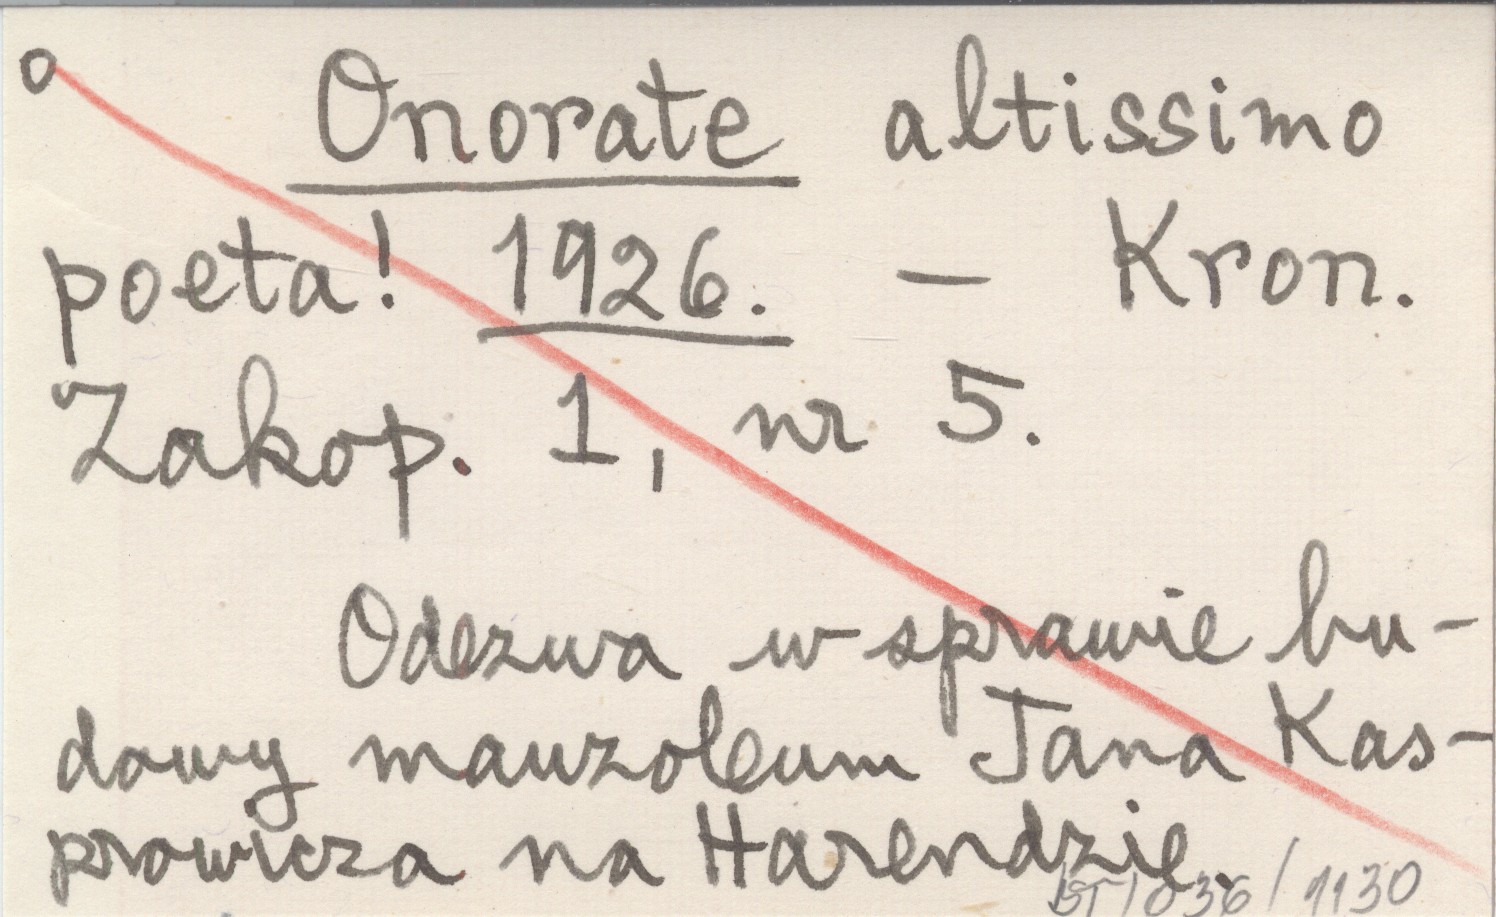 o Onorate altissimo
poeta! 1926. – Kron.
Zakop. 1, nr 5.
Odezwa w sprawie bu-
dowy mauzoleum Jana Kas-
prowicza na Harendzie.
BT/036/1130